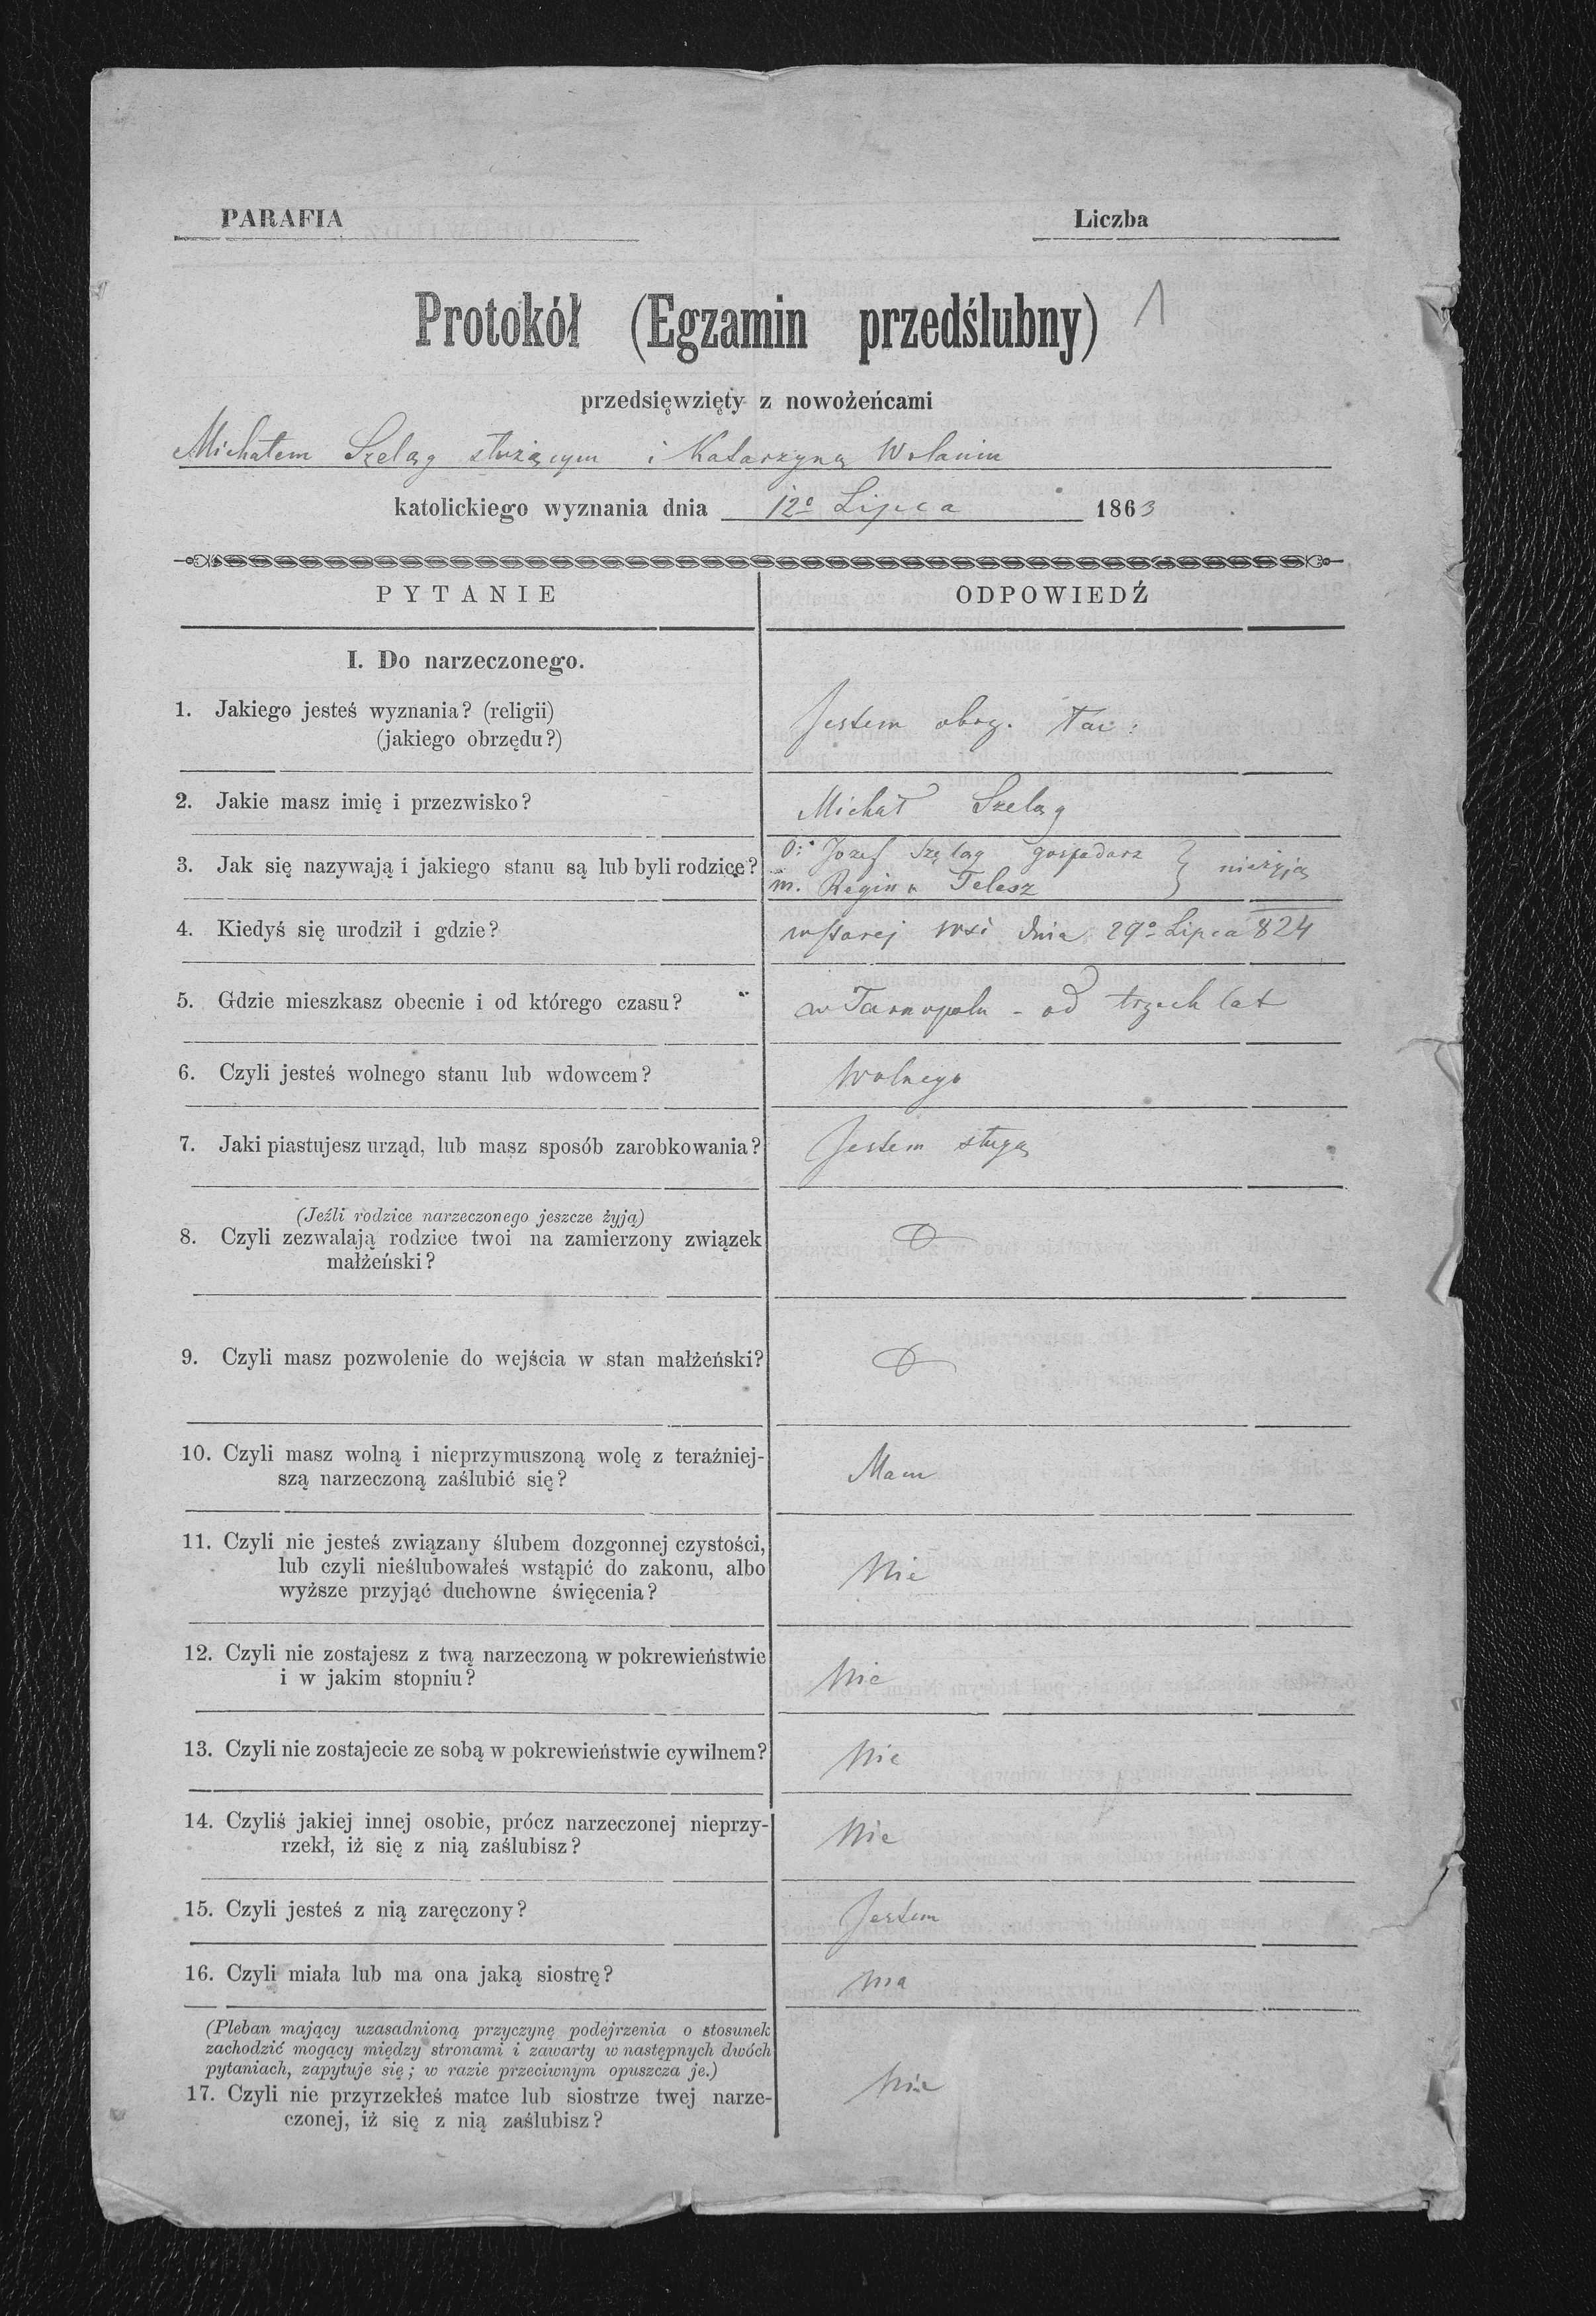 PARAFIA
Liczba
Protokół (Egzamin przedślubny) 1
przedsięwzięty z nowożeńcami
Michałem Szeląg służącym i Katarzyną Wolanin
katolickiego wyznania dnia 12º Lipca 1863
PYTANIE
ODPOWIEDŹ
I. Do narzeczonego.
1. Jakiego jesteś wyznania? (religii)
(jakiego obrzędu?)
Jestem obrz. łac:
2. Jakie masz imię i przezwisko?
Michał Szeląg
3. Jak się nazywają i jakiego stanu są lub byli rodzice?
O: Jozef Szeląg gospodarz } nieżyją
m. Regina Telesz
4. Kiedyś się urodził i gdzie?
w starej wsi dnia 29º Lipca 824
5. Gdzie mieszkasz obecnie i od którego czasu?
w Tarnopolu - od trzech lat
6. Czyli jesteś wolnego stanu lub wdowcem?
Wolnego
7. Jaki piastujesz urząd, lub masz sposób zarobkowania?
Jestem sługą
(Jeźli rodzice narzeczonego jeszcze żyją)
8. Czyli zezwalają rodzice twoi na zamierzony związek
małżeński?
9. Czyli masz pozwolenie do wejścia w stan małżeński?
10. Czyli masz wolną i nieprzymuszoną wolę z teraźniej-
szą narzeczoną zaślubić się?
Mam
11. Czyli nie jesteś związany ślubem dozgonnej czystości,
lub czyli nieślubowałeś wstąpić do zakonu, albo
wyższe przyjąć duchowne święcenia?
Nie
12. Czyli nie zostajesz z twą narzeczoną w pokrewieństwie
i w jakim stopniu?
Nie
13. Czyli nie zostajecie ze sobą w pokrewieństwie cywilnem?
Nie
14. Czyliś jakiej innej osobie, prócz narzeczonej nieprzy-
rzekł, iż się z nią zaślubisz?
Nie
15. Czyli jesteś z nią zaręczony?
Jestem
16. Czyli miała lub ma ona jaką siostrę?
Ma
(Pleban mający uzasadnioną przyczynę podejrzenia o stosunek
zachodzić mogący między stronami i zawarty w następnych dwóch
pytaniach, zapytuje się; w razie przeciwnym opuszcza je.)
17. Czyli nie przyrzekłeś matce lub siostrze twej narze-
czonej, iż się z nią zaślubisz?
Nie